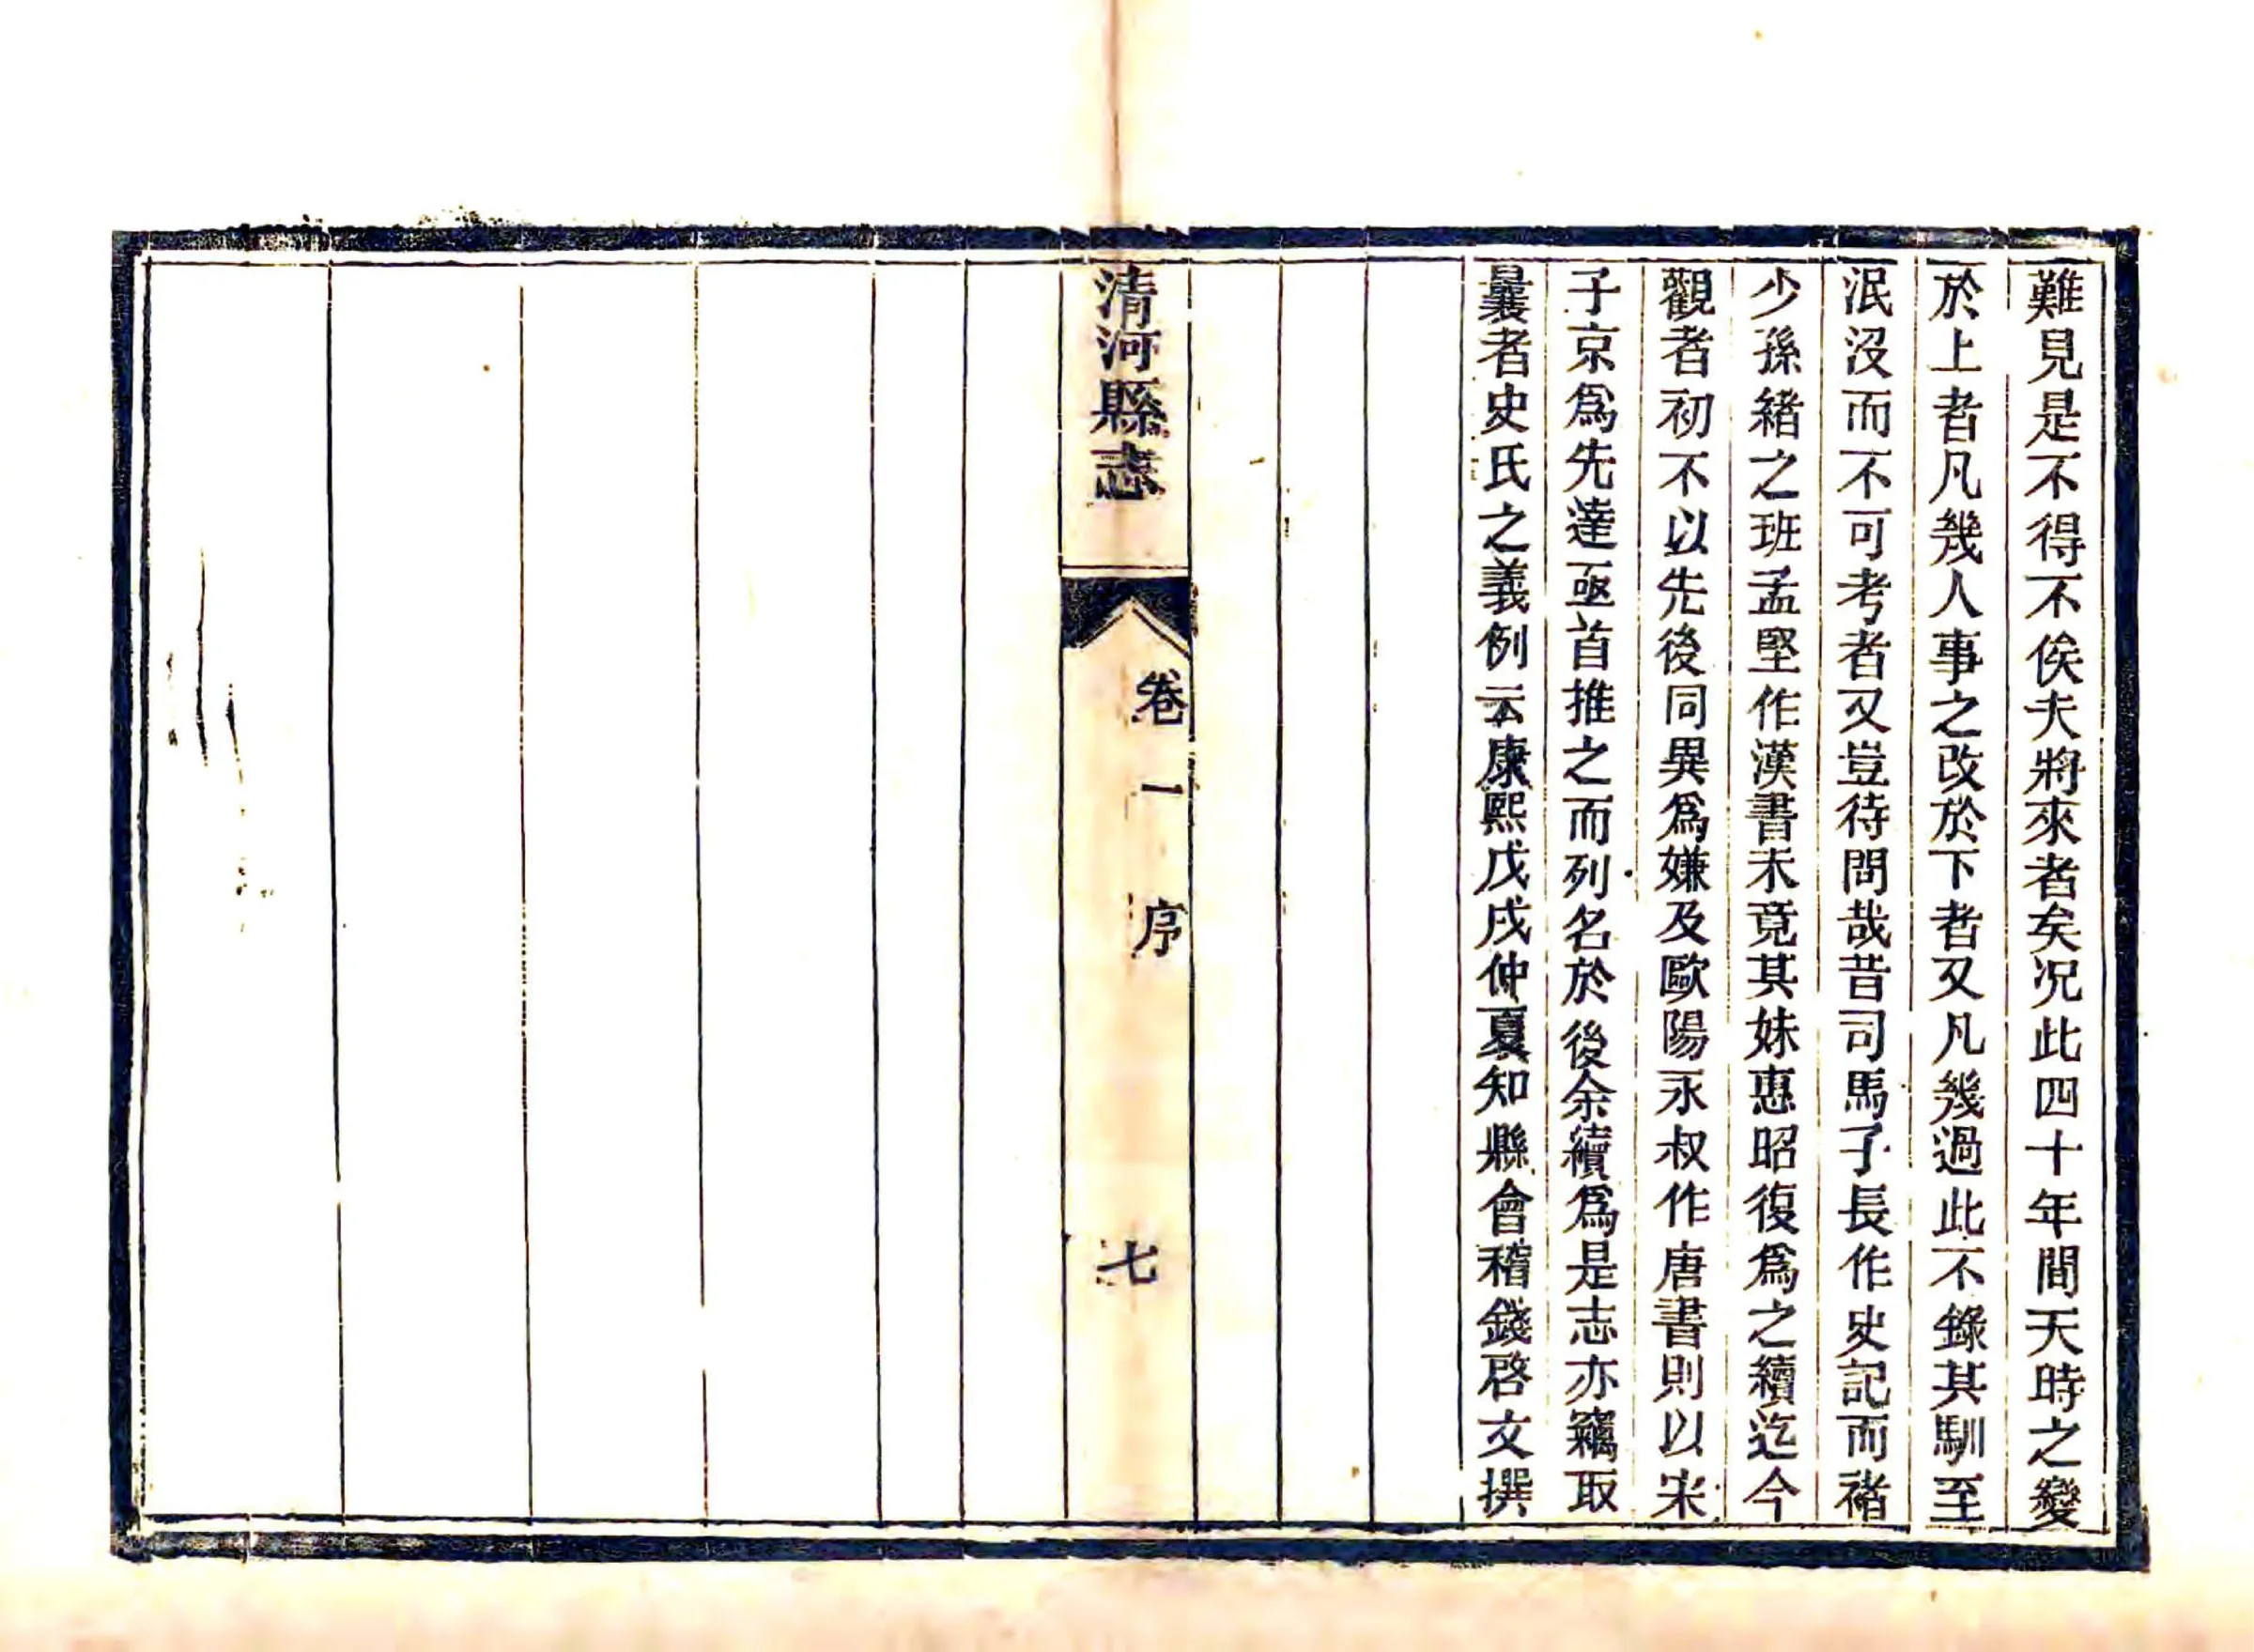 難見是不得不俟夫將來者矣况此四十年間天時之變
於上者凡幾人事之改於下者又凡幾過此不錄其馴至
泯沒而不可考者又豈待問哉昔司馬子長作史記而褚
少孫緒之班孟堅作漢書未竟其妹惠昭復爲之續迄今
觀者初不以先後同異爲嫌及歐陽永叔作唐書則以宋
子京爲先達亟首推之而列名於後余續爲是志亦竊取
曩者史氏之義例云康熙戊戌仲夏知縣會稽錢啓文撰
清河縣志
卷一
序
七